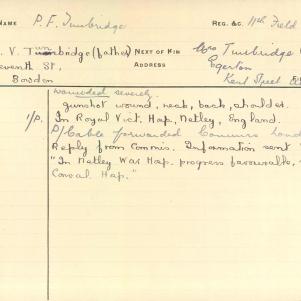 NAME P. F. Tunbridge REG. &C. 11th Field
. V. Tunbridge (father) NEXT OF KIN Mrs Tunbridge
eventh St, ADDRESS Egerton
Bowden Kent Street
wounded severely.
gunshot wound, neck, back, sholder.
I/P. In Royal Vict. Hosp, Netley, England.
P/Cable forwarded Commis
Reply from Commis. Information sent
"In Netley War Hosp. progress favourable,
Conval Hosp."